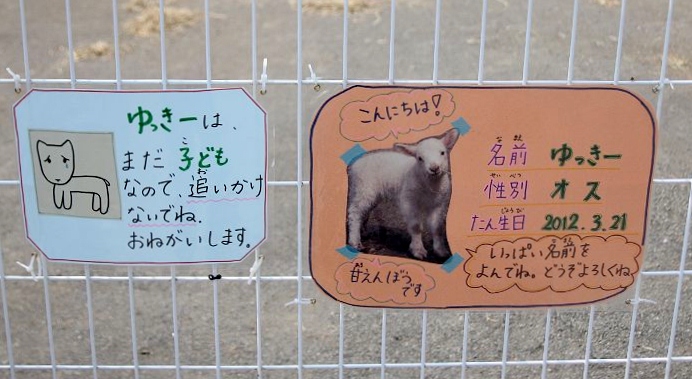 ゆっきーは、
まだ子ども
なので、追いかけ
ないでね.
おねがいします。
こんにちは!
名前 ゆっきー
性別 オス
たん生日 2012.3.21
甘えんぼう
です
いっぱい名前を
よんでね。どうぞよろしくね